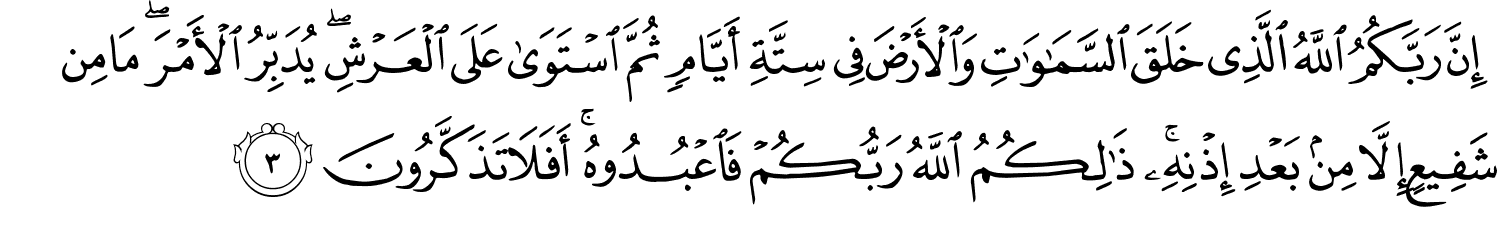 إِنَّ رَبَّكُمُ ٱللَّهُ ٱلَّذِى خَلَقَ ٱلسَّمَـٰوَٰتِ وَٱلْأَرْضَ فِى سِتَّةِ أَيَّامٍ ثُمَّ ٱسْتَوَىٰ عَلَى ٱلْعَرْشِ ۖ يُدَبِّرُ ٱلْأَمْرَ ۖ مَا مِن
شَفِيعٍ إِلَّا مِنۢ بَعْدِ إِذْنِهِۦ ۚ ذَٰلِكُمُ ٱللَّهُ رَبُّكُمْ فَٱعْبُدُوهُ ۚ أَفَلَا تَذَكَّرُونَ ٣